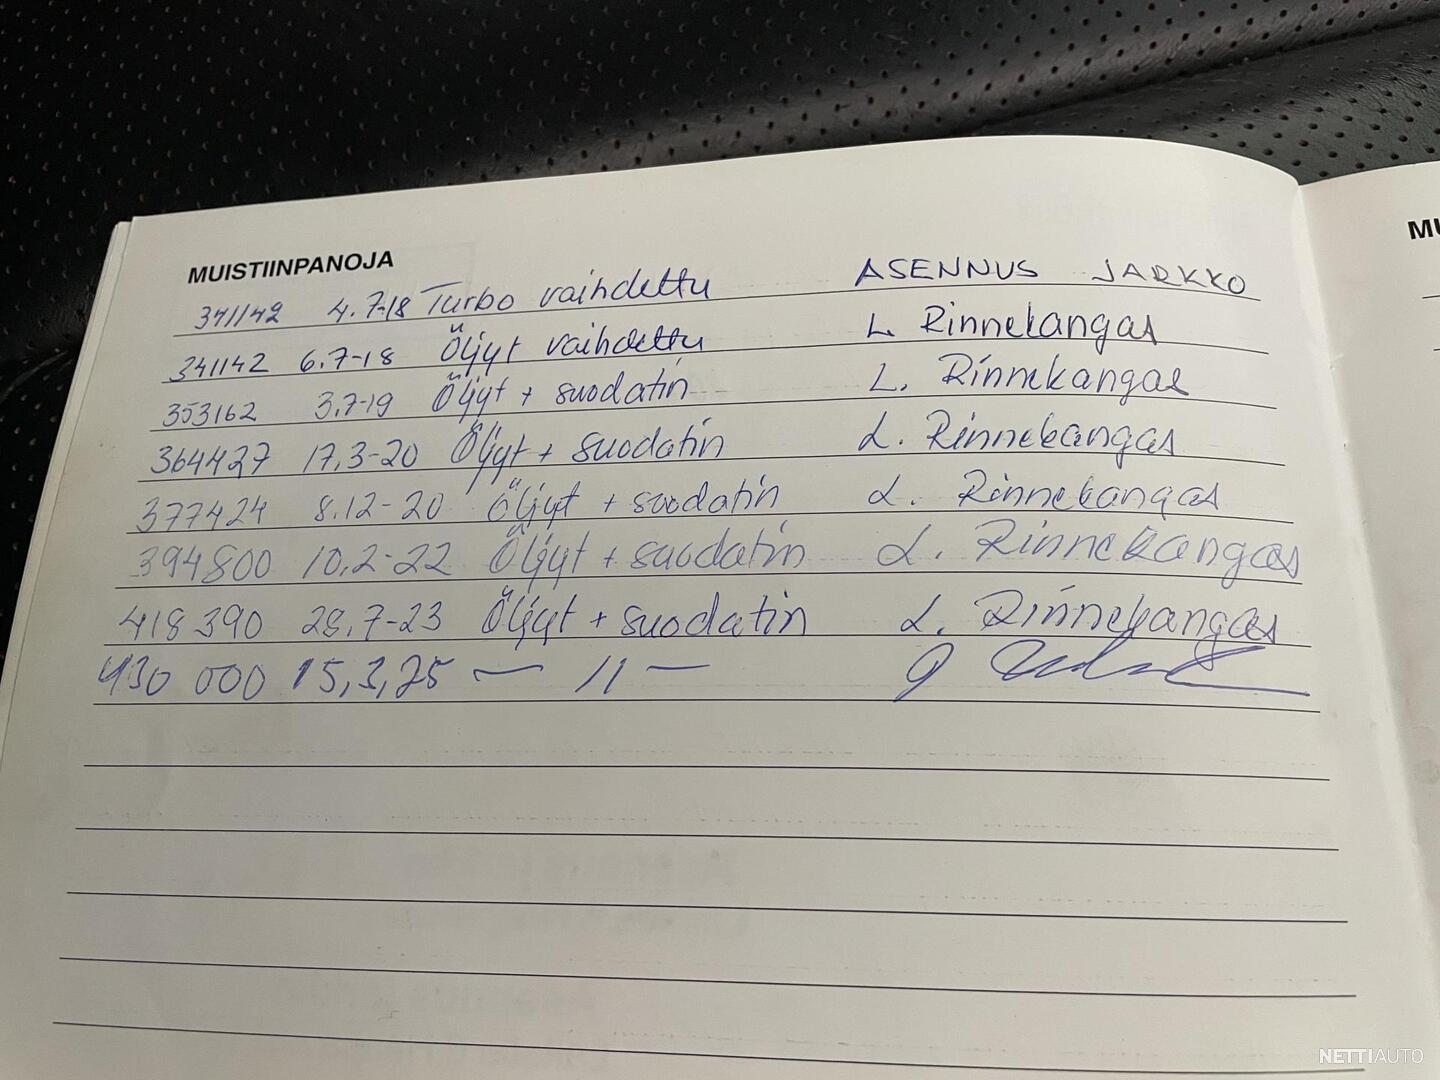 MUISTIINPANOJA
341142 4.7-18 Turbo vaihdettu ASENNUS JARKKO
341142 6.7-18 Öljyt vaihdettu L. Rinnekangas
353162 3.7-19 Öljyt + suodatin L. Rinnekangas
364427 17.3-20 Öljyt + suodatin L. Rinnekangas
377424 8.12-20 Öljyt + suodatin L. Rinnekangas
394800 10.2-22 Öljyt + suodatin L. Rinnekangas
418390 28.7-23 Öljyt + suodatin L. Rinnekangas
430 000 15,3,25 — 11 —
MU
NETTIAUTO